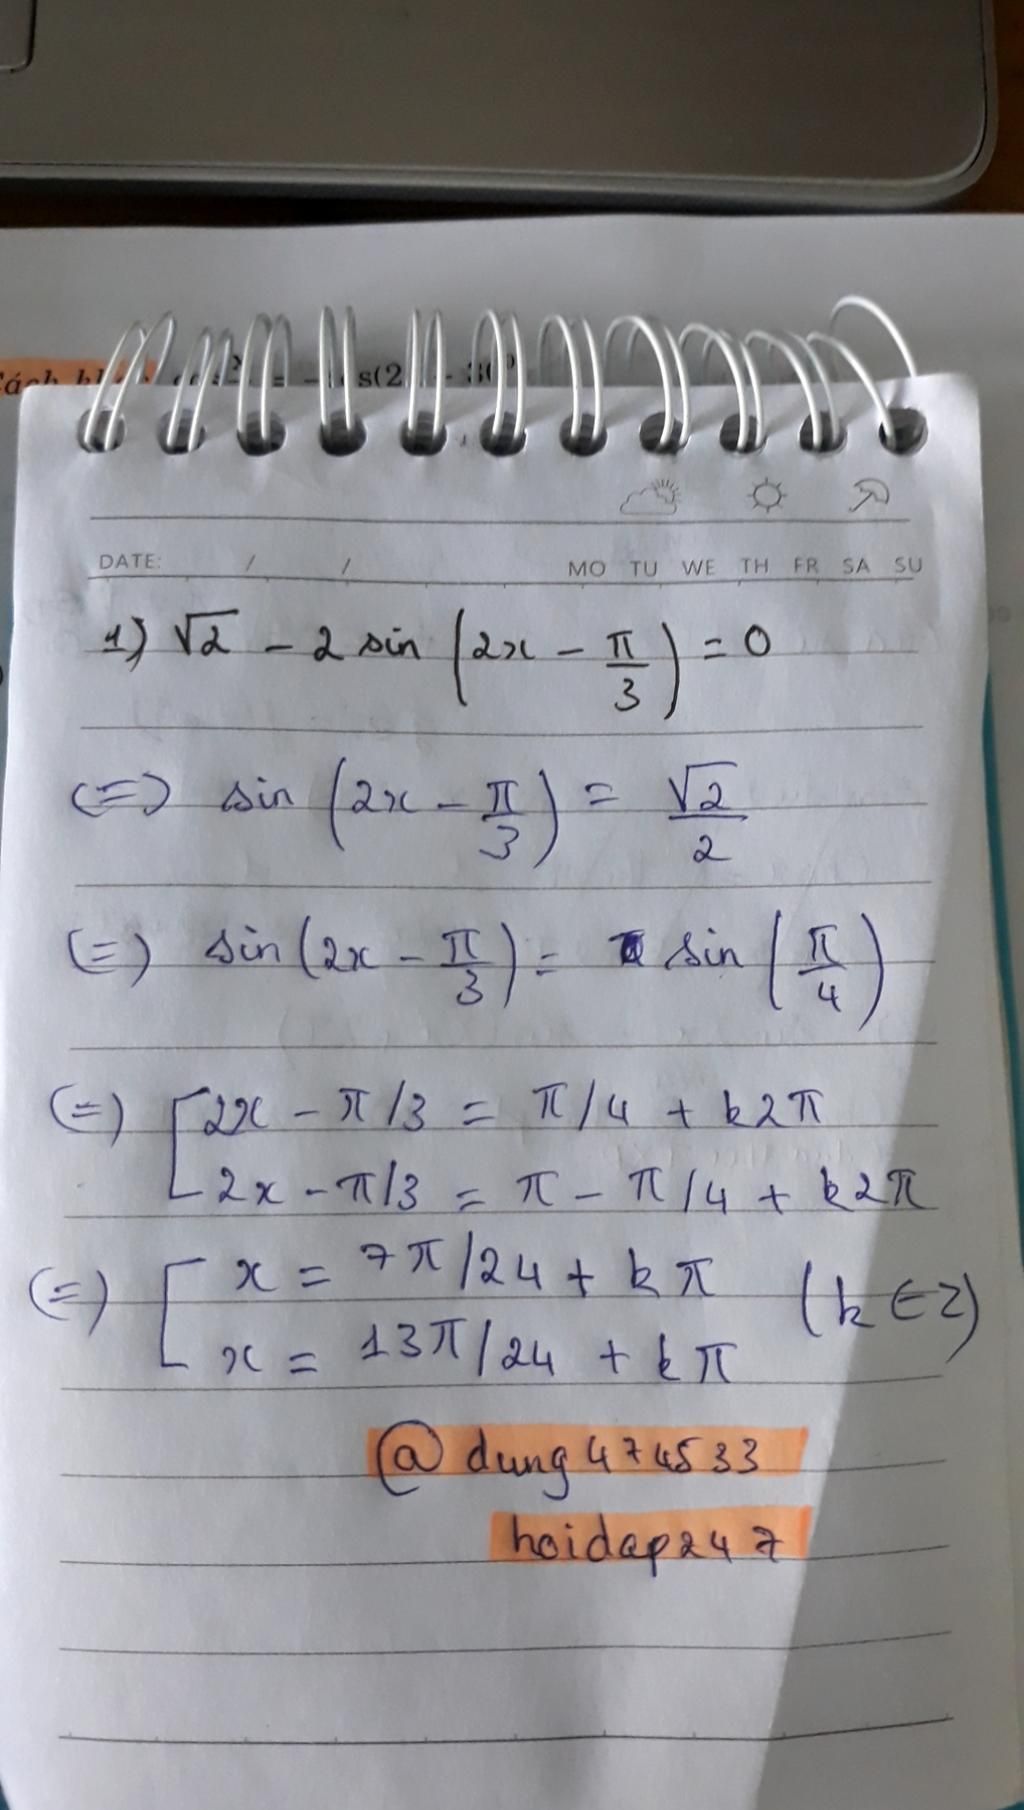 s(2
DATE: / / MO TU WE TH FR SA SU
1) √2 - 2 sin (2x - π/3) = 0
(=) sin (2x - π/3) = √2/2
(=) sin (2x - π/3) = sin (π/4)
(=) [ 2x - π/3 = π/4 + k2π
2x - π/3 = π - π/4 + k2π
(=) [ x = 7π/24 + kπ (k ∈ Z)
x = 13π/24 + kπ
@ dung474533
hoidap247